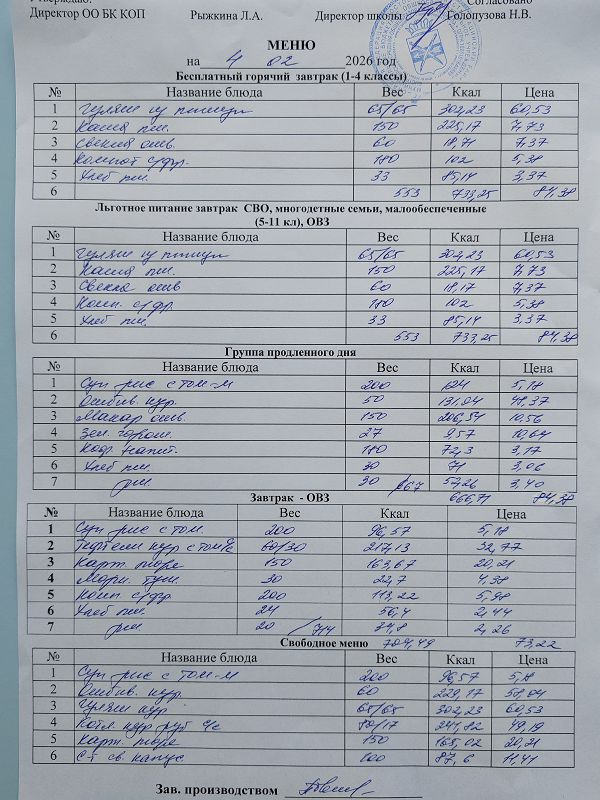 Утверждаю:
Согласовано
Директор ОО БК КОП Рыжкина Л.А. Директор школы Голопузова Н.В.
МЕНЮ
на 4 02 2026 год
Бесплатный горячий завтрак (1-4 классы)
№ Название блюда Вес Ккал Цена
1 Гуляш из птицы 65/65 302,23 60,53
2 Каша пш. 150 225,17 7,73
3 Свекла отв. 60 18,71 7,37
4 Компот с/фр. 180 102 5,38
5 Хлеб пш. 33 85,14 3,37
6 553 733,25 84,38
Льготное питание завтрак СВО, многодетные семьи, малообеспеченные
(5-11 кл), ОВЗ
№ Название блюда Вес Ккал Цена
1 Гуляш из птицы 65/65 302,23 60,53
2 Каша пш. 150 225,17 7,73
3 Свекла отв 60 18,17 7,37
4 Комп. с/фр. 180 102 5,38
5 Хлеб пш. 33 85,14 3,37
6 553 733,25 84,38
Группа продленного дня
№ Название блюда Вес Ккал Цена
1 Суп рис с том-м 200 124 5,18
2 Отбив. кур. 50 131,04 48,37
3 Макар отв. 150 206,54 10,56
4 Зел. горош. 27 9,57 10,64
5 Коф. напит. 180 72,3 3,17
6 Хлеб пш. 30 71 3,06
7 рж 30 /667 52,26 3,40
Завтрак - ОВЗ 666,71 84,38
№ Название блюда Вес Ккал Цена
1 Суп рис с том. 200 96,57 5,18
2 Тефтели кур с том/с 60/30 217,13 32,77
3 Карт. пюре 150 163,67 20,21
4 Морк. туш. 30 22,7 4,38
5 Комп с/фр 200 113,22 5,98
6 Хлеб пш. 24 56,4 2,44
7 рж 20 /714 34,8 2,26
Свободное меню 704,49 73,22
№ Название блюда Вес Ккал Цена
1 Суп рис с том-м 200 96,57 5,18
2 Отбив. кур. 60 229,17 58,04
3 Гуляш кур 65/65 302,23 60,53
4 Котл кур руб с/с 80/17 241,82 49,19
5 Карт. пюре 150 165,02 20,21
6 Ст св. капус 100 87,6 11,41
Зав. производством